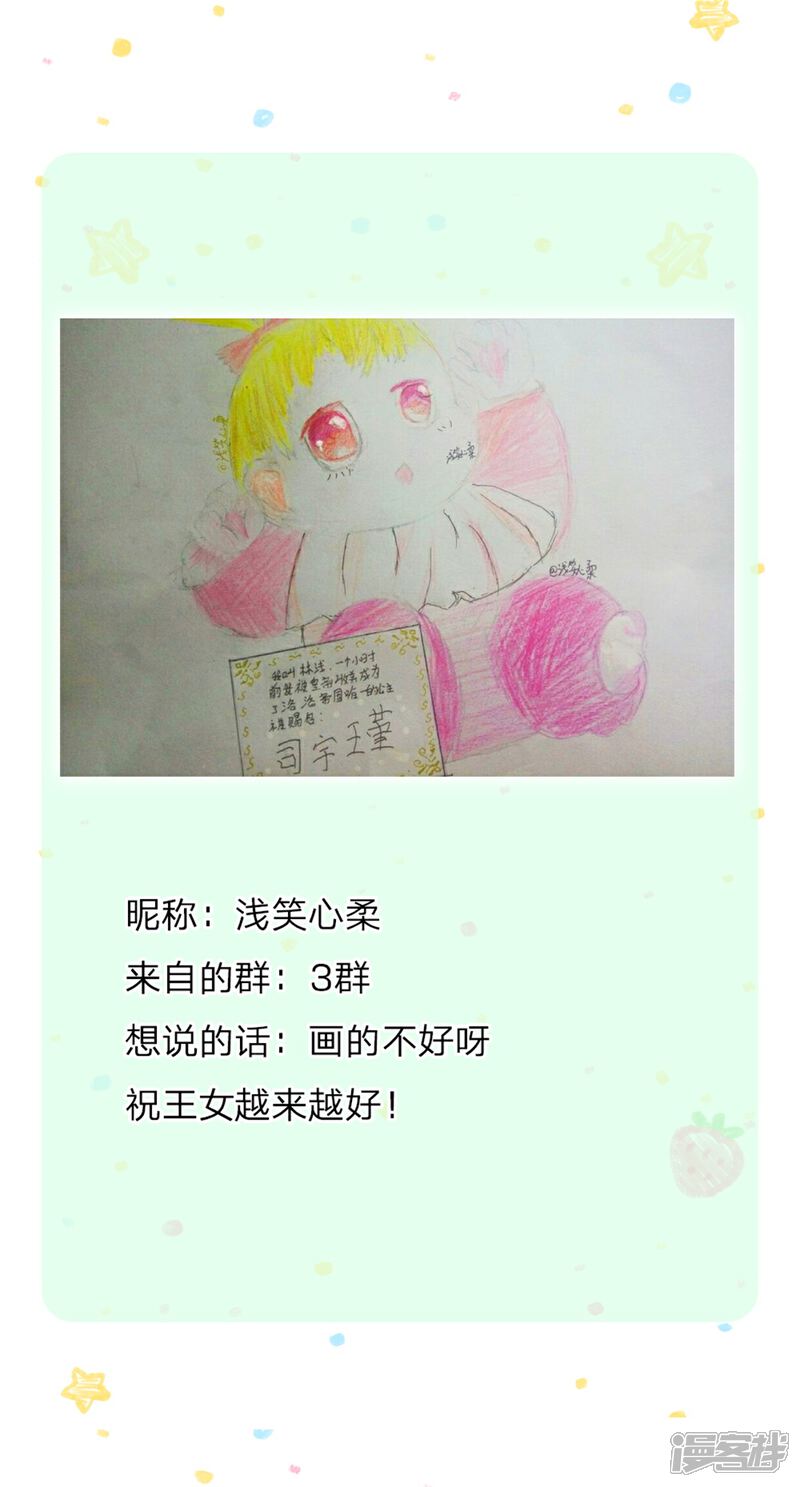 @浅笑心柔
浅笑心柔
@浅笑心柔
我叫林浅,一个小时
前我被皇帝收养成为
了洛洛帝国唯一的公主
被赐名:
司宇王堇
昵称：浅笑心柔
来自的群：3群
想说的话：画的不好呀
祝王女越来越好！
漫客栈